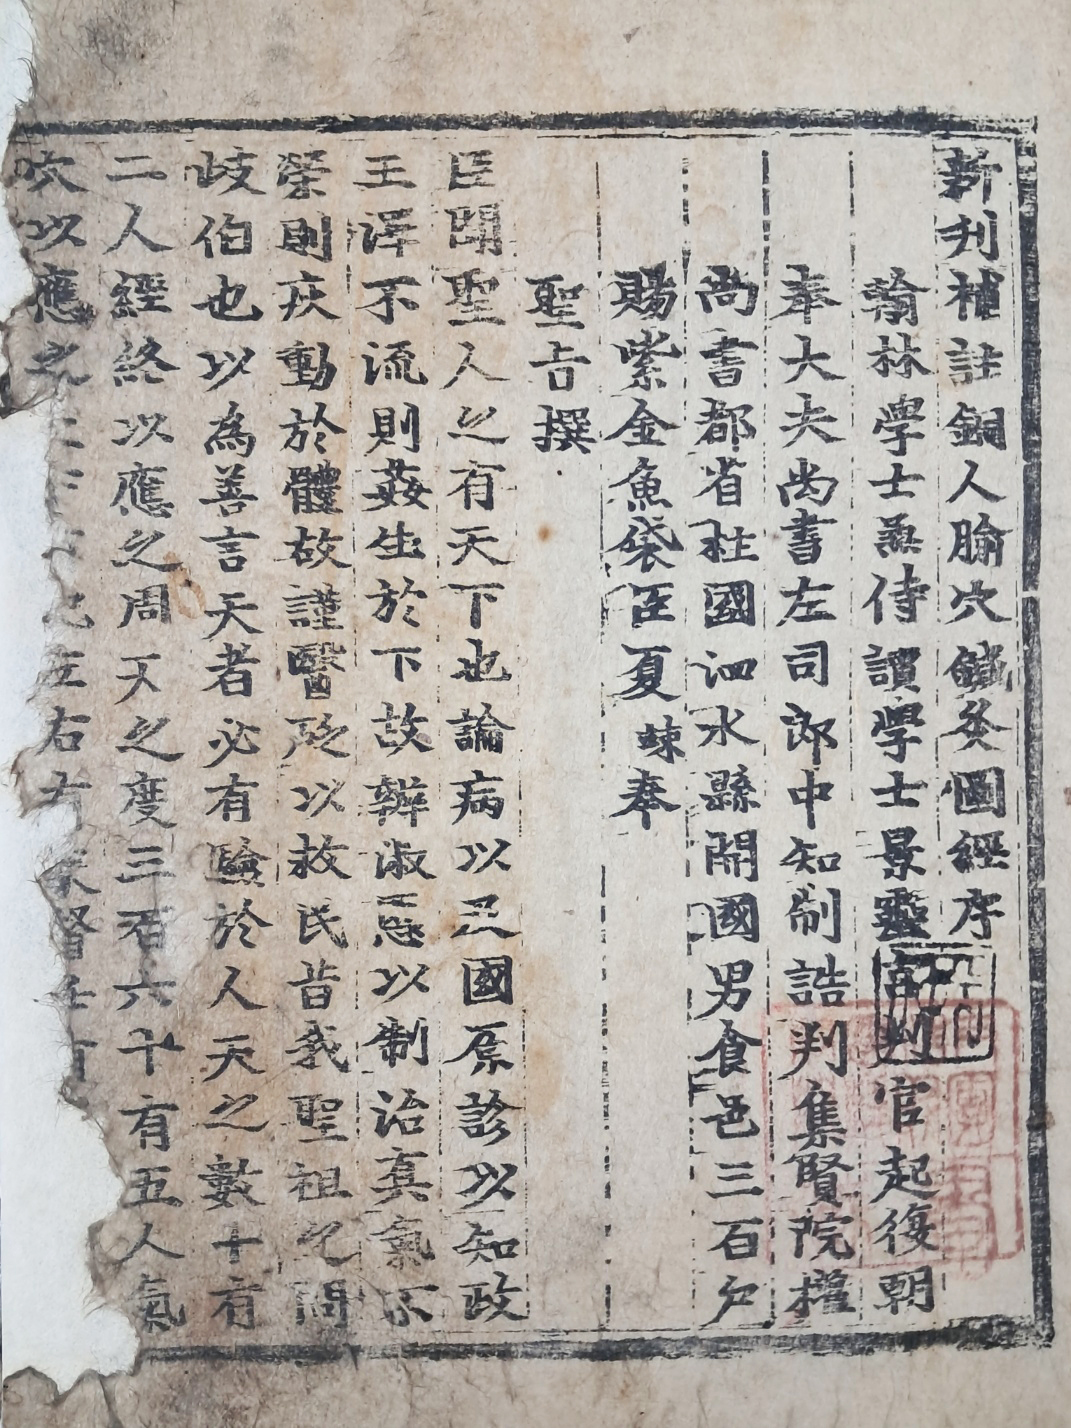 新刋補註銅人腧穴鍼灸圖經序
翰林學士兼侍讀學士景靈宮判官起復朝
奉大夫尚書左司郎中知制誥判集賢院權
尚書都省柱國泗水縣開國男食邑三百戶
賜紫金魚袋臣夏竦奉
聖旨撰
臣聞聖人之有天下也論病以及國原診以知政
王澤不流則姦生於下故辨淑慝以制治真氣不
榮則疾動於體故謹醫砭以救民昔我聖祖之問
歧伯也以為善言天者必有驗於人天之數十有
二人經絡以應之周天之度三百六十有五人氣
穴以應之
左右